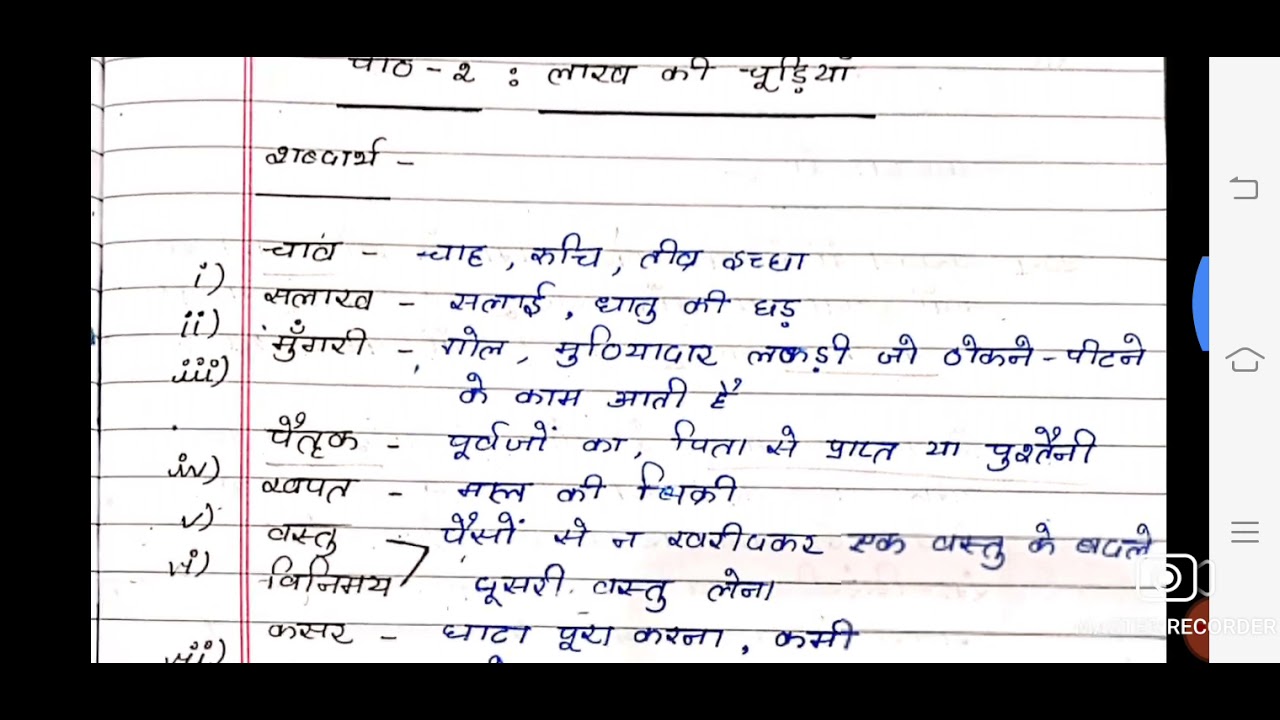 पाठ - २ : लाख की चूड़ियाँ
शब्दार्थ -
i) चाव - चाह , रुचि , तीव्र इच्छा
ii) सलाख - सलाई , धातु की छड़
iii) मुँगरी - गोल , मुठियादार लकड़ी जो ठोकने - पीटने
के काम आती है
iv) पैतृक - पूर्वजों का , पिता से प्राप्त या पुश्तैनी
v) खपत - माल की बिक्री
vi) वस्तु पैसों से न खरीदकर एक वस्तु के बदले
विनिमय दूसरी वस्तु लेना
vii) कसर - घाटा पूरा करना , कमी
RECORDER